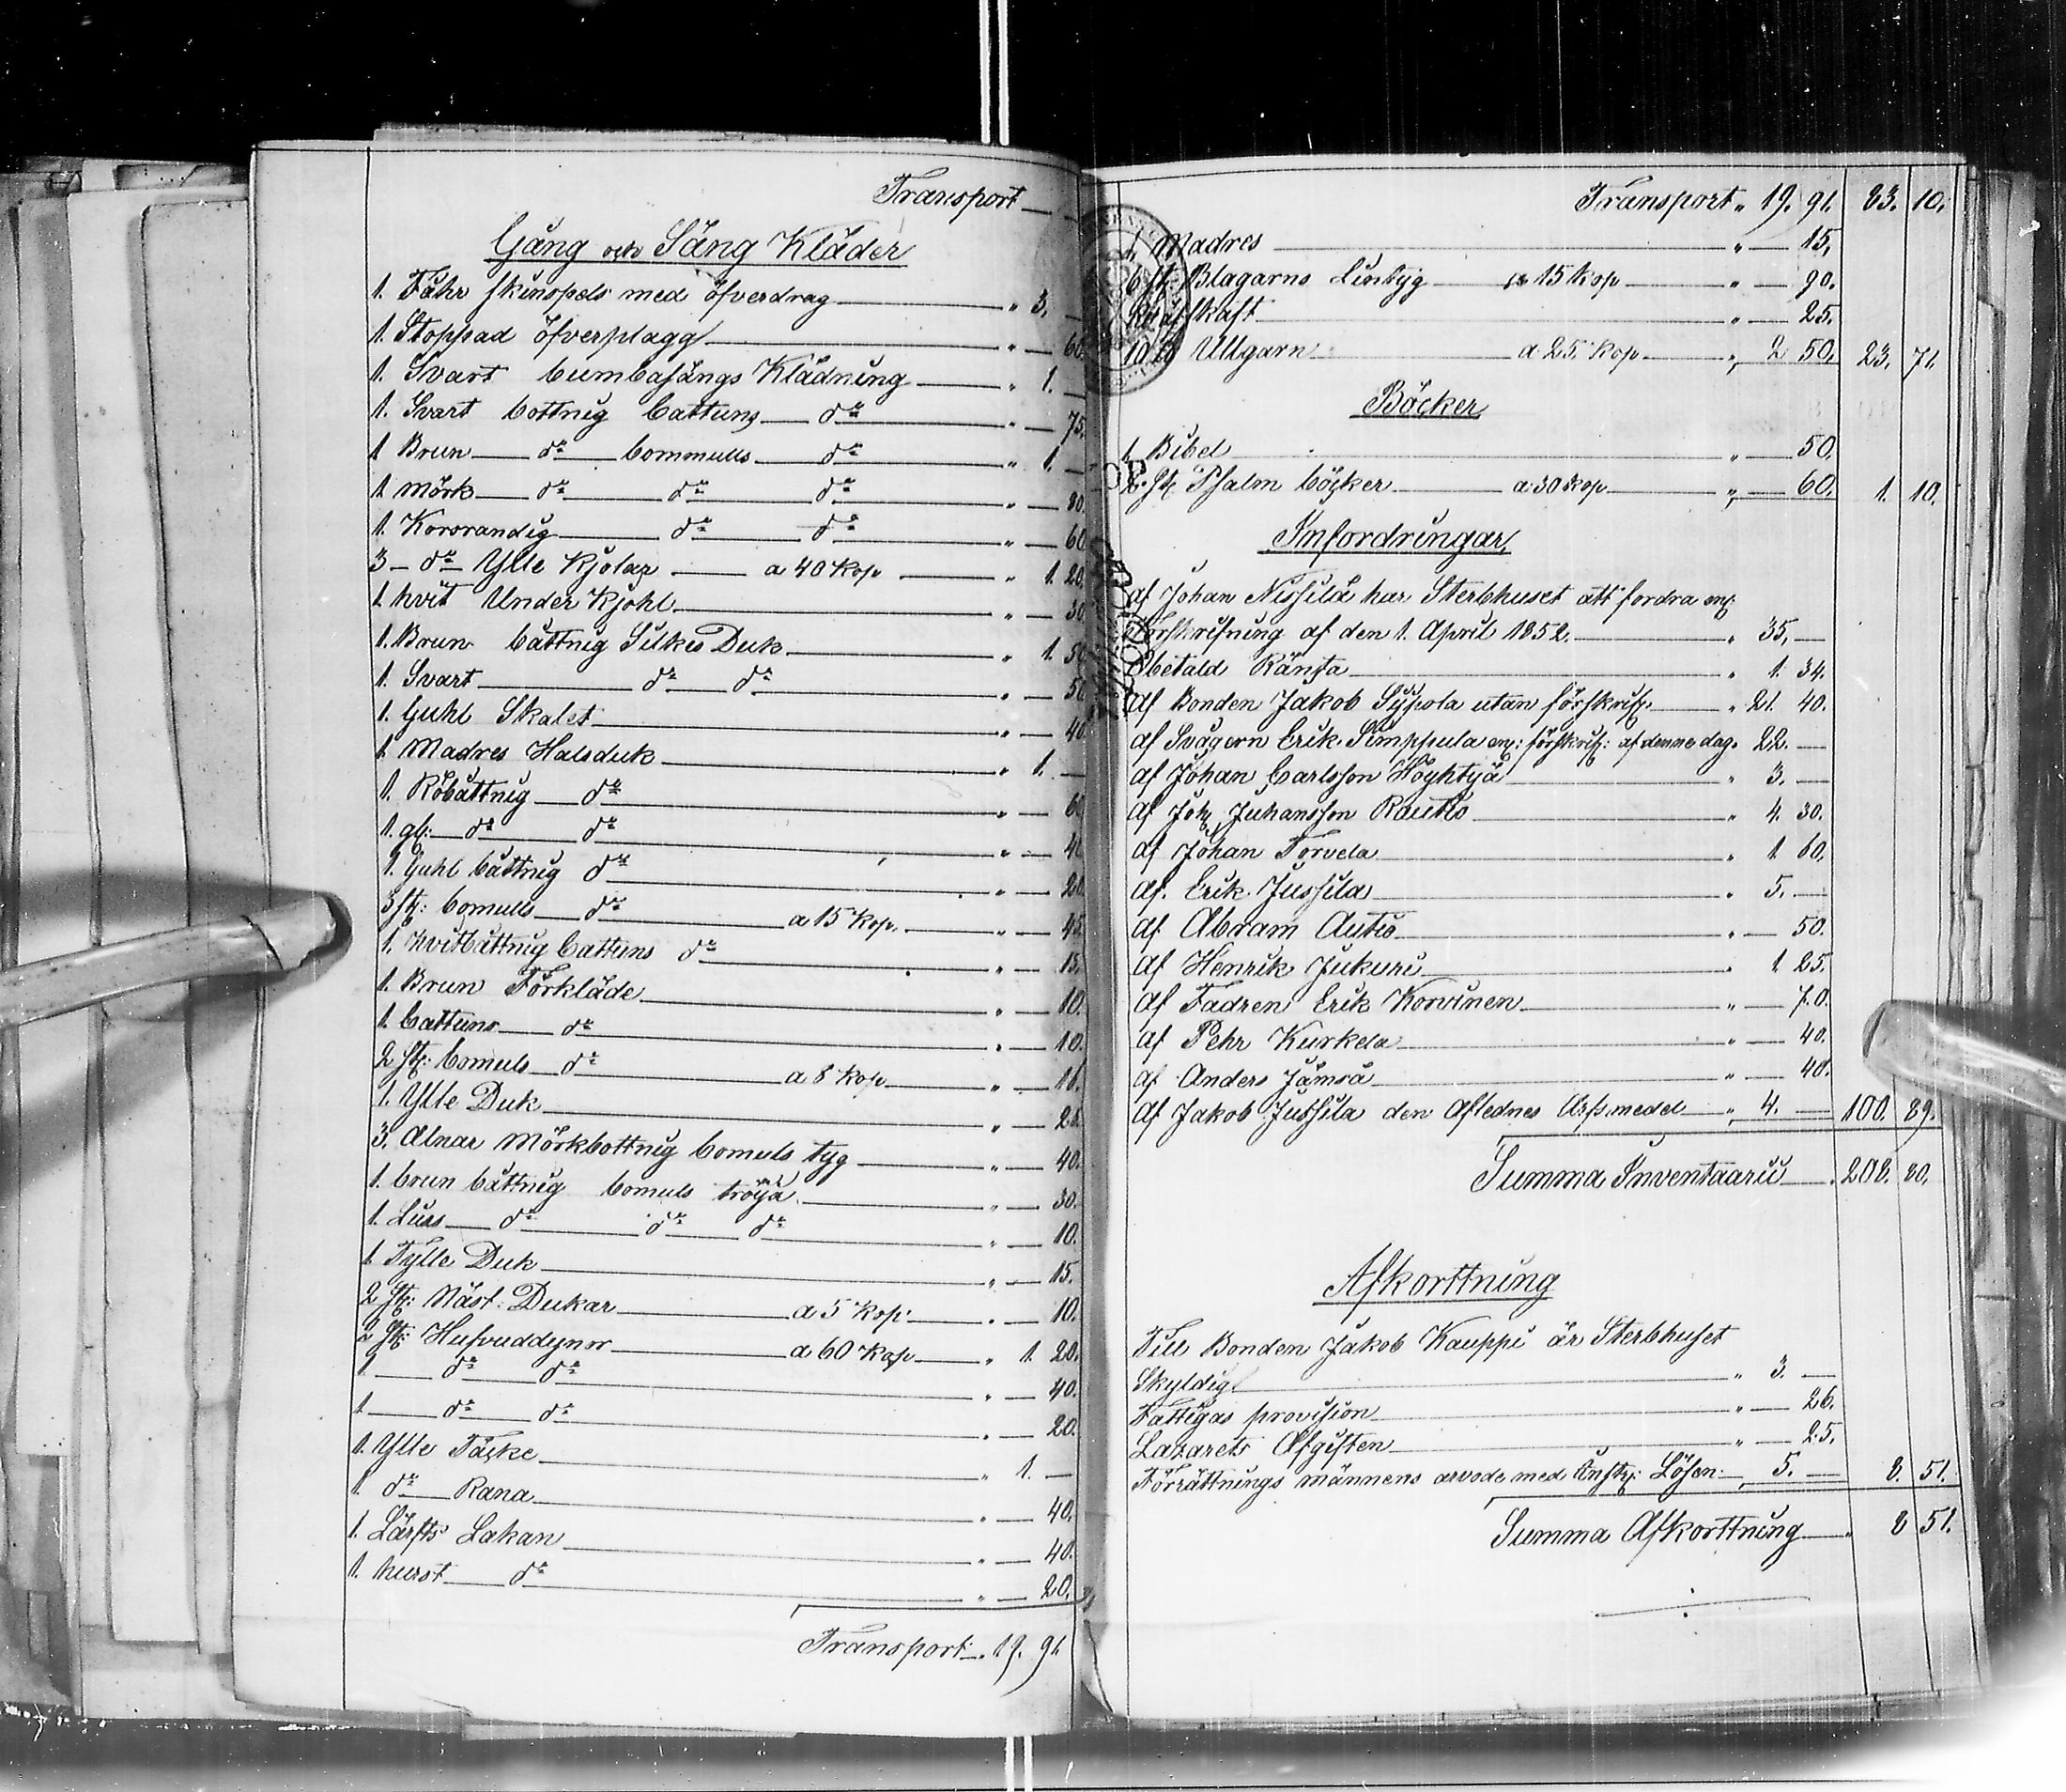 Transport
Gång och Säng Kläder
1. Fåhr skinspels med öfverdrag " 3. —
1. Stoppad öfverplagg " — 60.
1. Svart bumbasängs Klädning " 1. —
1. Svart bottnig Cattuns d:o " — 75.
1 Brun d:o bommulls d:o " 1. —
1 Mörk d:o d:o d:o " — 80.
1. Kororandig d:o d:o " — 60
3 – d:o Ylle Kjolar a 40 Kop " 1. 20
1. hvit Under Kjohl " — 30
1. Brun båttnig Silkes Duk " 1. 50
1. Svart d:o d:o " — 50
1. Guhl Skalet " — 40
1. Madres Halsduk " 1. —
1. Röbåttnig d:o " — 60
1. gl: d:o d:o " — 40
1. Guhl båttnig d:o " — 20
3 st: bomulls d:o a 15 Kop. " — 45.
1. Hvitbåttnig Cattuns d:o " — 15.
1. Brun Förkläde " — 10.
1. Cattuns d:o " — 10.
2 st: bomuls d:o a 8 Kop " — 16.
1. Ylle Duk " — 25.
3. Alnar Mörkbottnig bomuls tyg " — 40.
1. brun båttnig bomuls tröija " — 30.
1. Liuss d:o d:o d:o " — 10.
1. Tylle Duk " — 15.
2 st: Näst: Dukar a 5 Kop: " — 10.
2 st: Hufvuddynor a 60 Kop " 1. 20.
1. d:o d:o " — 40.
1. d:o d:o " — 20.
1. Ylle Täcke " 1. —
1. d:o Rana " — 40.
1. Lärfts Lakan " — 40.
1. hurst d:o " — 20.
Transport " 19. 91
Transport " 19. 91. 83. 10.
1, Madres " — 15.
6 st: Blagarns Lintyg a 15 Kop " — 90.
skaft " — 25.
10 Ullgarn a 25. Kop " 2 50. 23. 71.
Böcker
1. Bibel " — 50.
2. st: Psalm böcker a 30 Kop " — 60. 1. 10.
Infordringar
af Johan Nissilä har Sterbhuset att fordra enl:
förskrifning af den 1. April 1852. " 35, —
Obetald Ränta " 1. 34.
af Bonden Jakob Sÿpola utan förskrif: " 21. 40.
af Svågern Erik Simppula enl: förskrif: af denne dag " 22. —
af Johan Carlsson Höyhtyä " 3. —
af Joh: Juhansson Rautio " 4. 30.
af Johan Torvela " 1. 60.
af. Erik Jussila " 5. —
af Abram Autio " — 50.
af Henrik Jukuri " 1. 25.
af Fadren Erik Korvinen " — 70.
af Pehr Kurkela " — 40.
af Anders Jämsä " — 40.
af Jakob Jussila den Aflednes Arfsmedel " 4. — 100. 89.
Summa Inventaarii " 208. 80.
Afkorttning
Till Bonden Jakob Kauppi är Sterbhuset
Skyldig " 3. —
Fattigas provision " — 26.
Lazarets Afgiften " — 25.
Förrättnings männens arvode med Lösen " 5. — 8. 51.
Summa Afkorttning " 8 51.